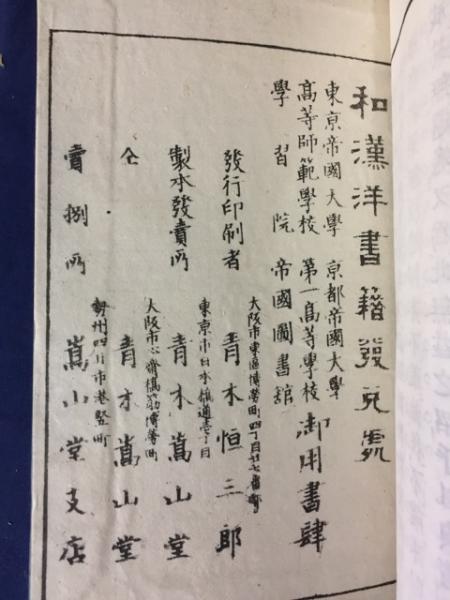 和漢洋書籍發兌處
東京帝國大學 京都帝國大學
高等師範學校 第一高等學校 御用書肆
學習院 帝國圖書館
大阪市東區博勞町四丁目廿七番地
發行印刷者 青木恒三郎
東京市日本橋通壱丁目
製本發賣所 青木嵩山堂
大阪市心齋橋筋博勞町
仝 青木嵩山堂
勢州四日市港竪町
賣捌所 嵩山堂支店